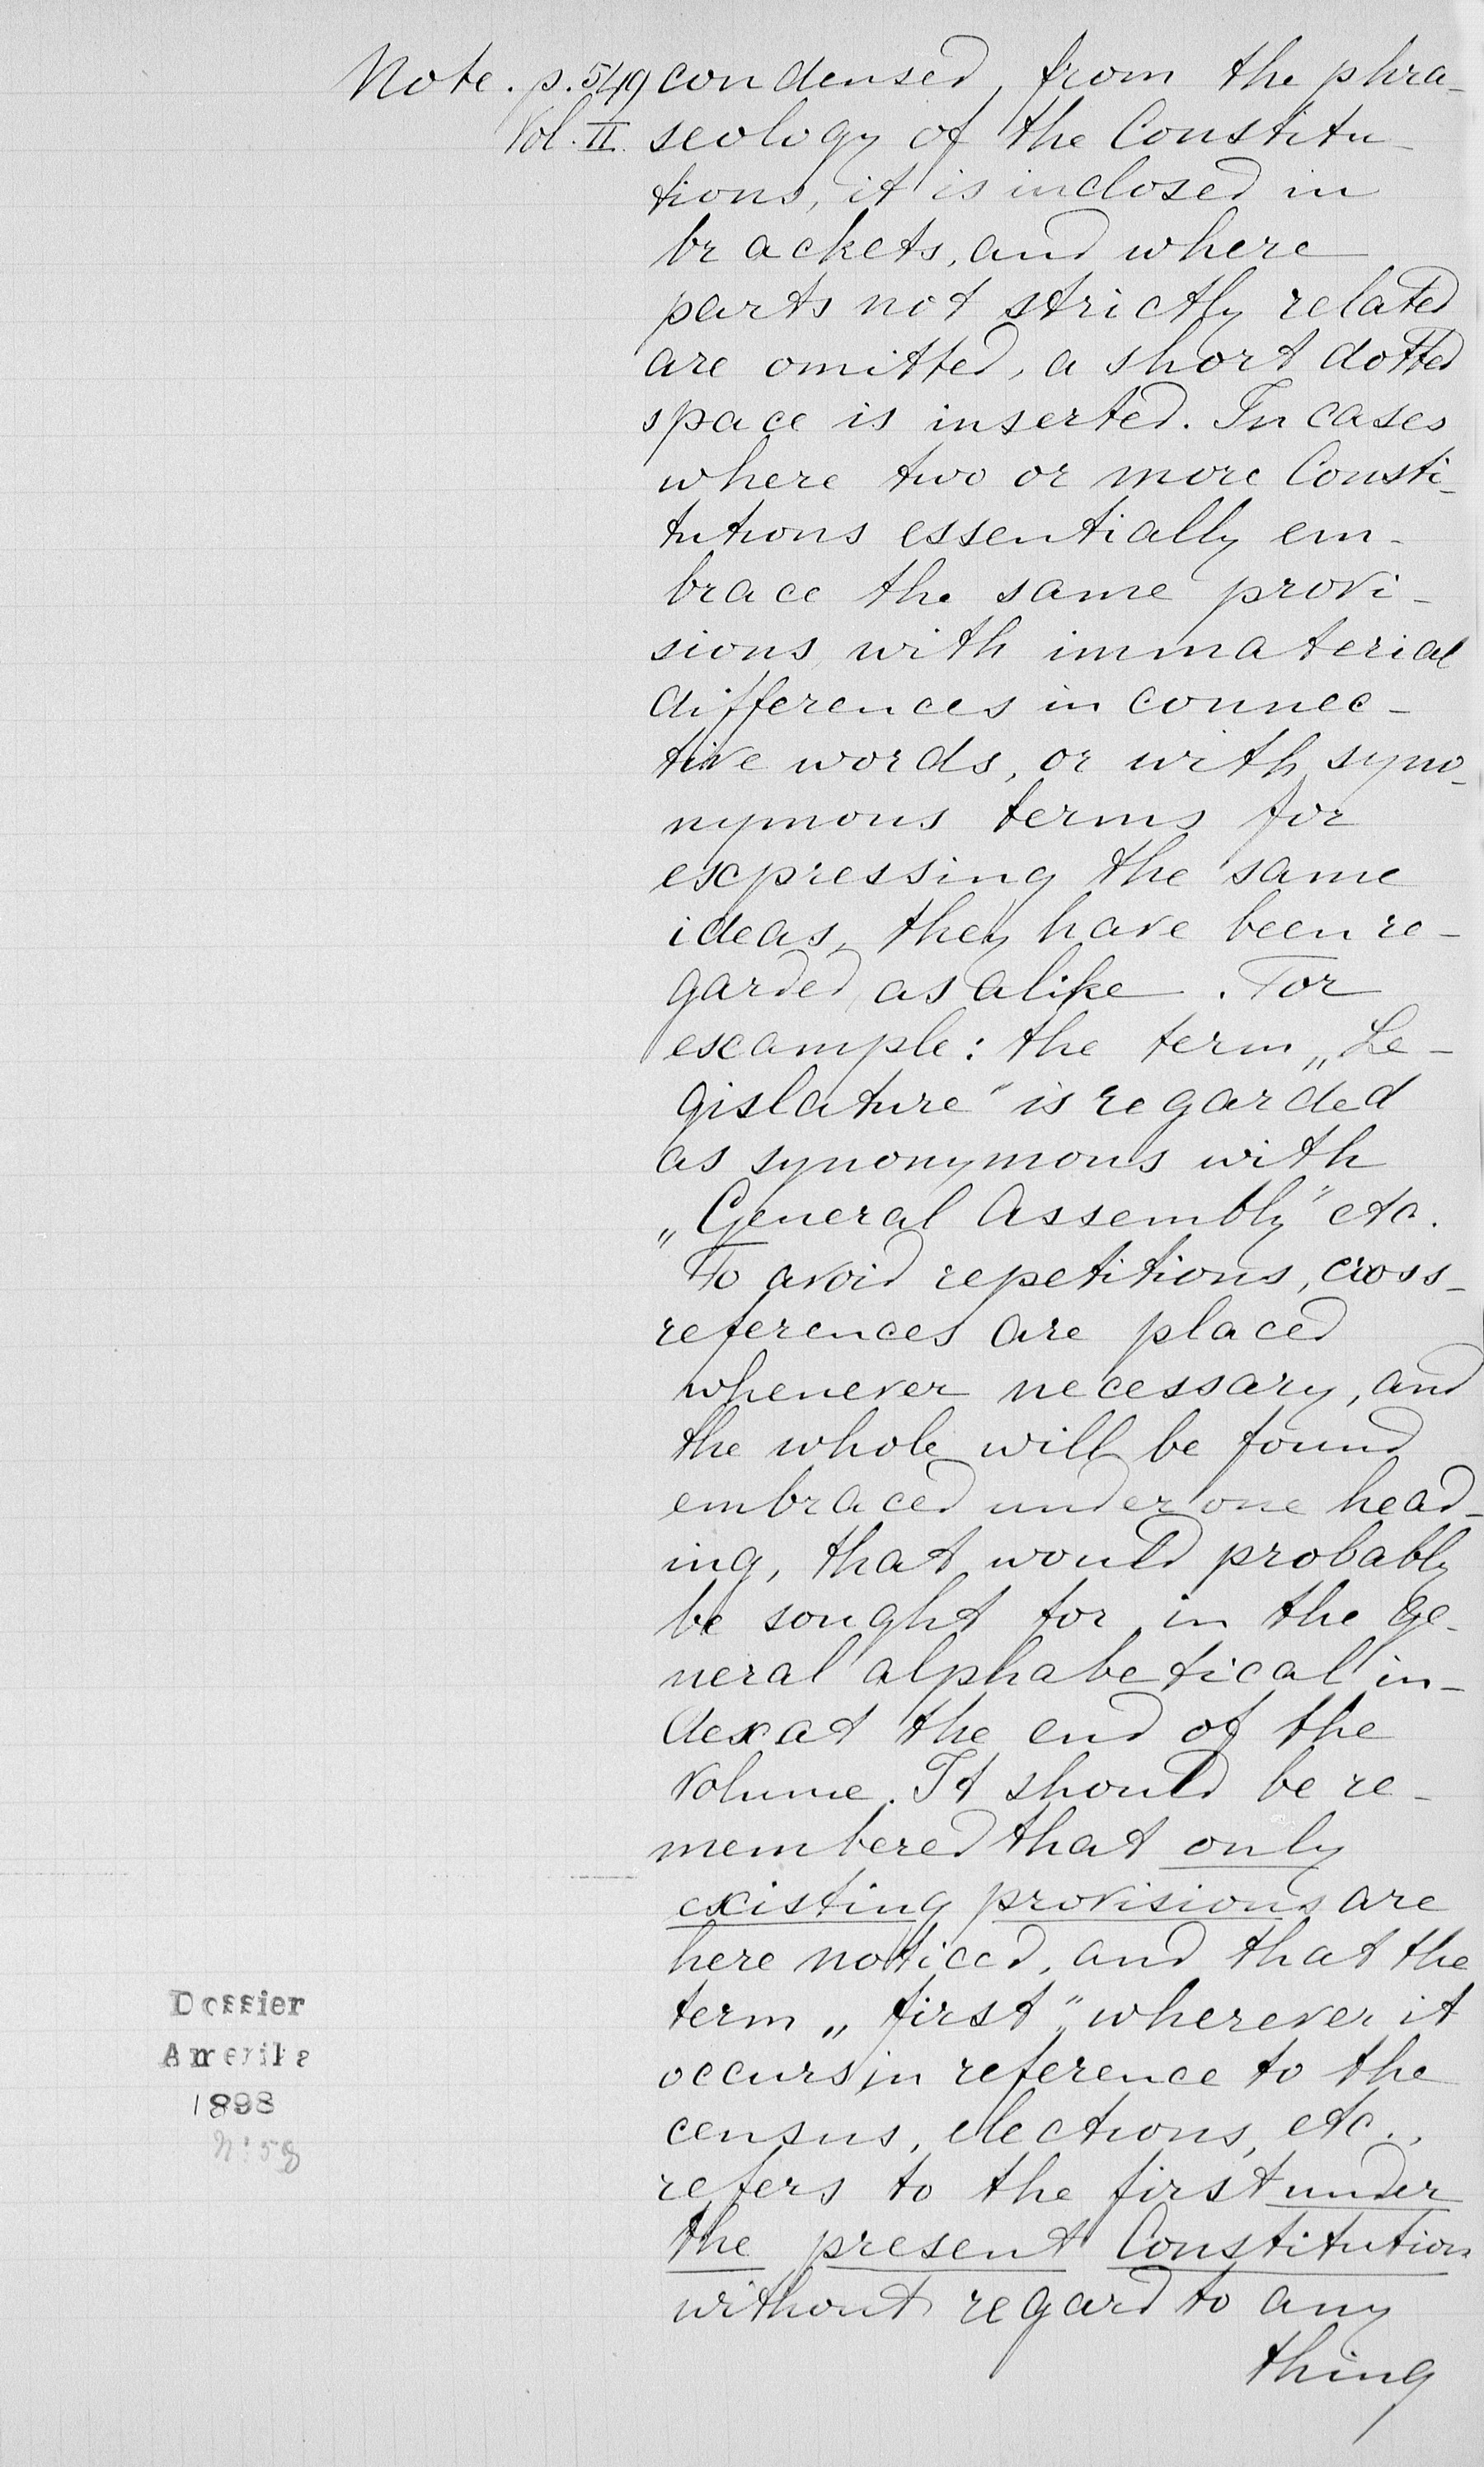 Note. p. 549 condensed, from the phra-
Vol. II. seology of the Constitu-
tions, it is inclosed in
brackets, and where
parts not strictly related
are omitted, a short dotted
space is inserted. In cases
where two or more Consti-
tutions essentially em-
brace the same provi-
sions with immaterial
differences in connec-
tive words, or with syno-
nymous terms for
expressing the same
ideas, they have been re-
garded as alike. For
example: the term „Le-
gislature" is regarded
as synonymous with
„General Assembly" etc.
To avoid repetitions, cross-
references are placed
whenever necessary, and
the whole will be found
embraced under one head-
ing, that would probably
be sought for in the ge-
neral alphabetical in-
dex at the end of the
Volume. It should be re-
membered that only
existing provisions are
here noticed, and that the
term „first" wherever it
occurs in reference to the
census, elections, etc.,
refers to the first under
the present Constitution
without regard to any
thing
Dossier
Amerika
1898
N: 58